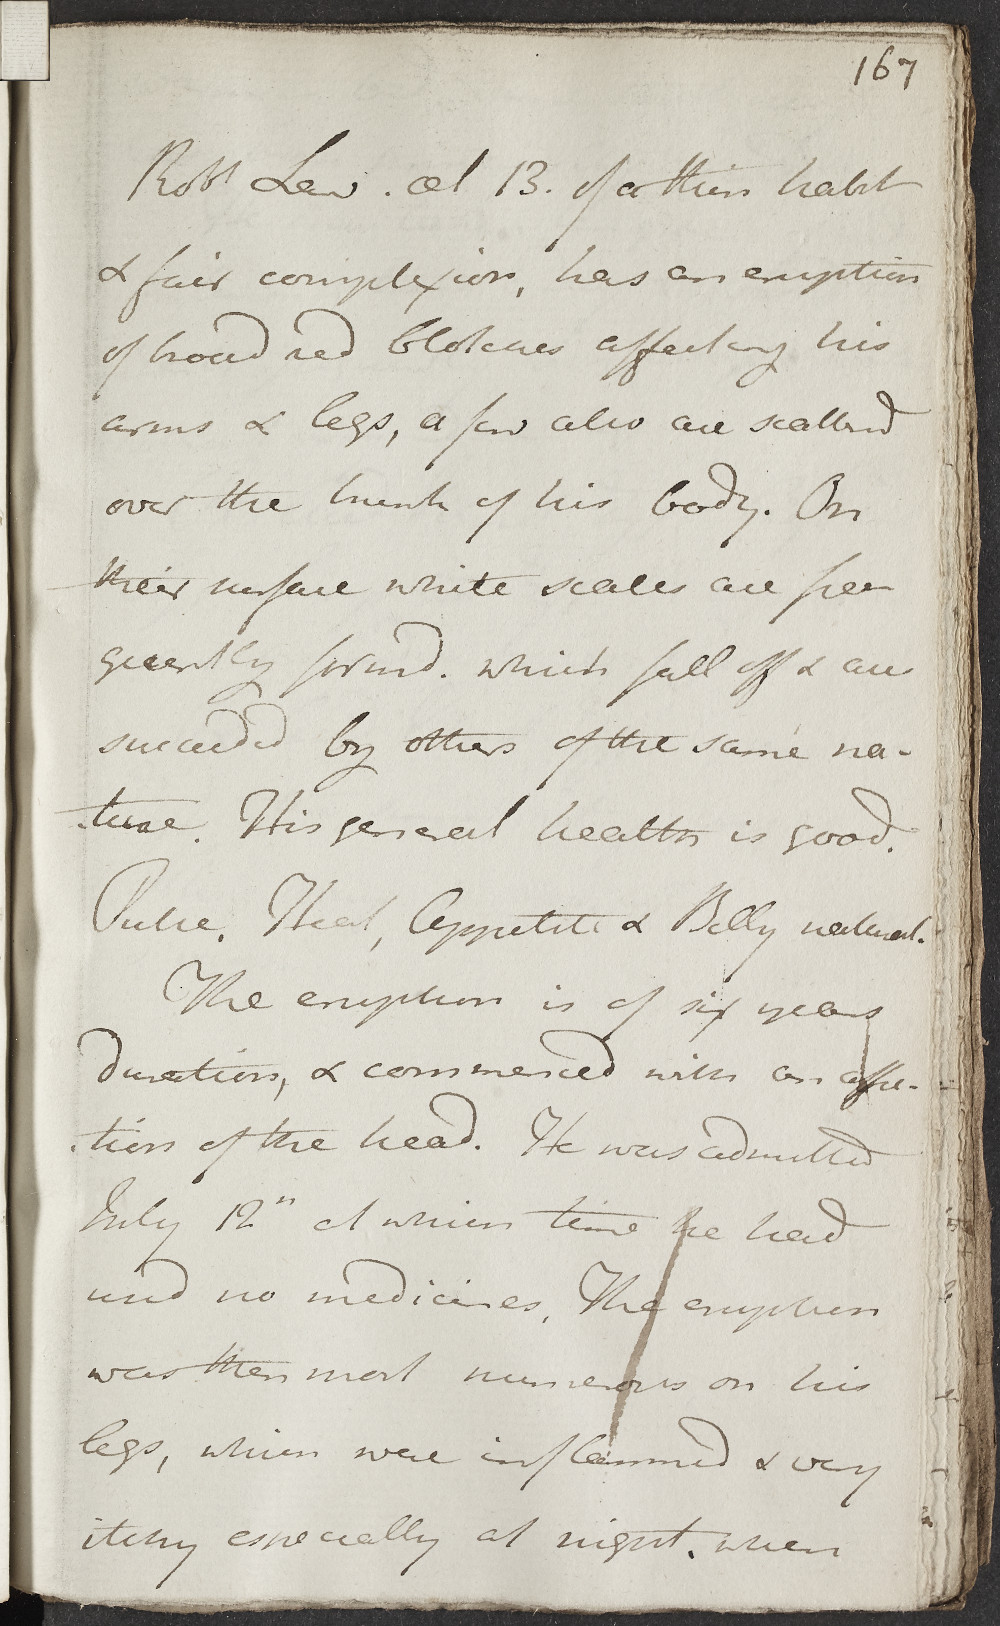 167
Robt Law. aet 13. of a thin habit
& fair complexion, has an eruption
of broad red blotches affecting his
arms & legs, a few also are scatterd
over the trunk of his body. On
their surface white scales are fre
quently formd. which fall off & are
succeeded by others of the same na-
ture. His general health is good.
Pulse, Heat, Appetite & Belly natural.
The eruption is of six years
duration, & commenced with an affec-
tion of the head. He was admitted
July 12th at which time he had
used no medicines, The eruption
was then most numerous on his
legs, which were inflammed & very
itchy especially at night. when